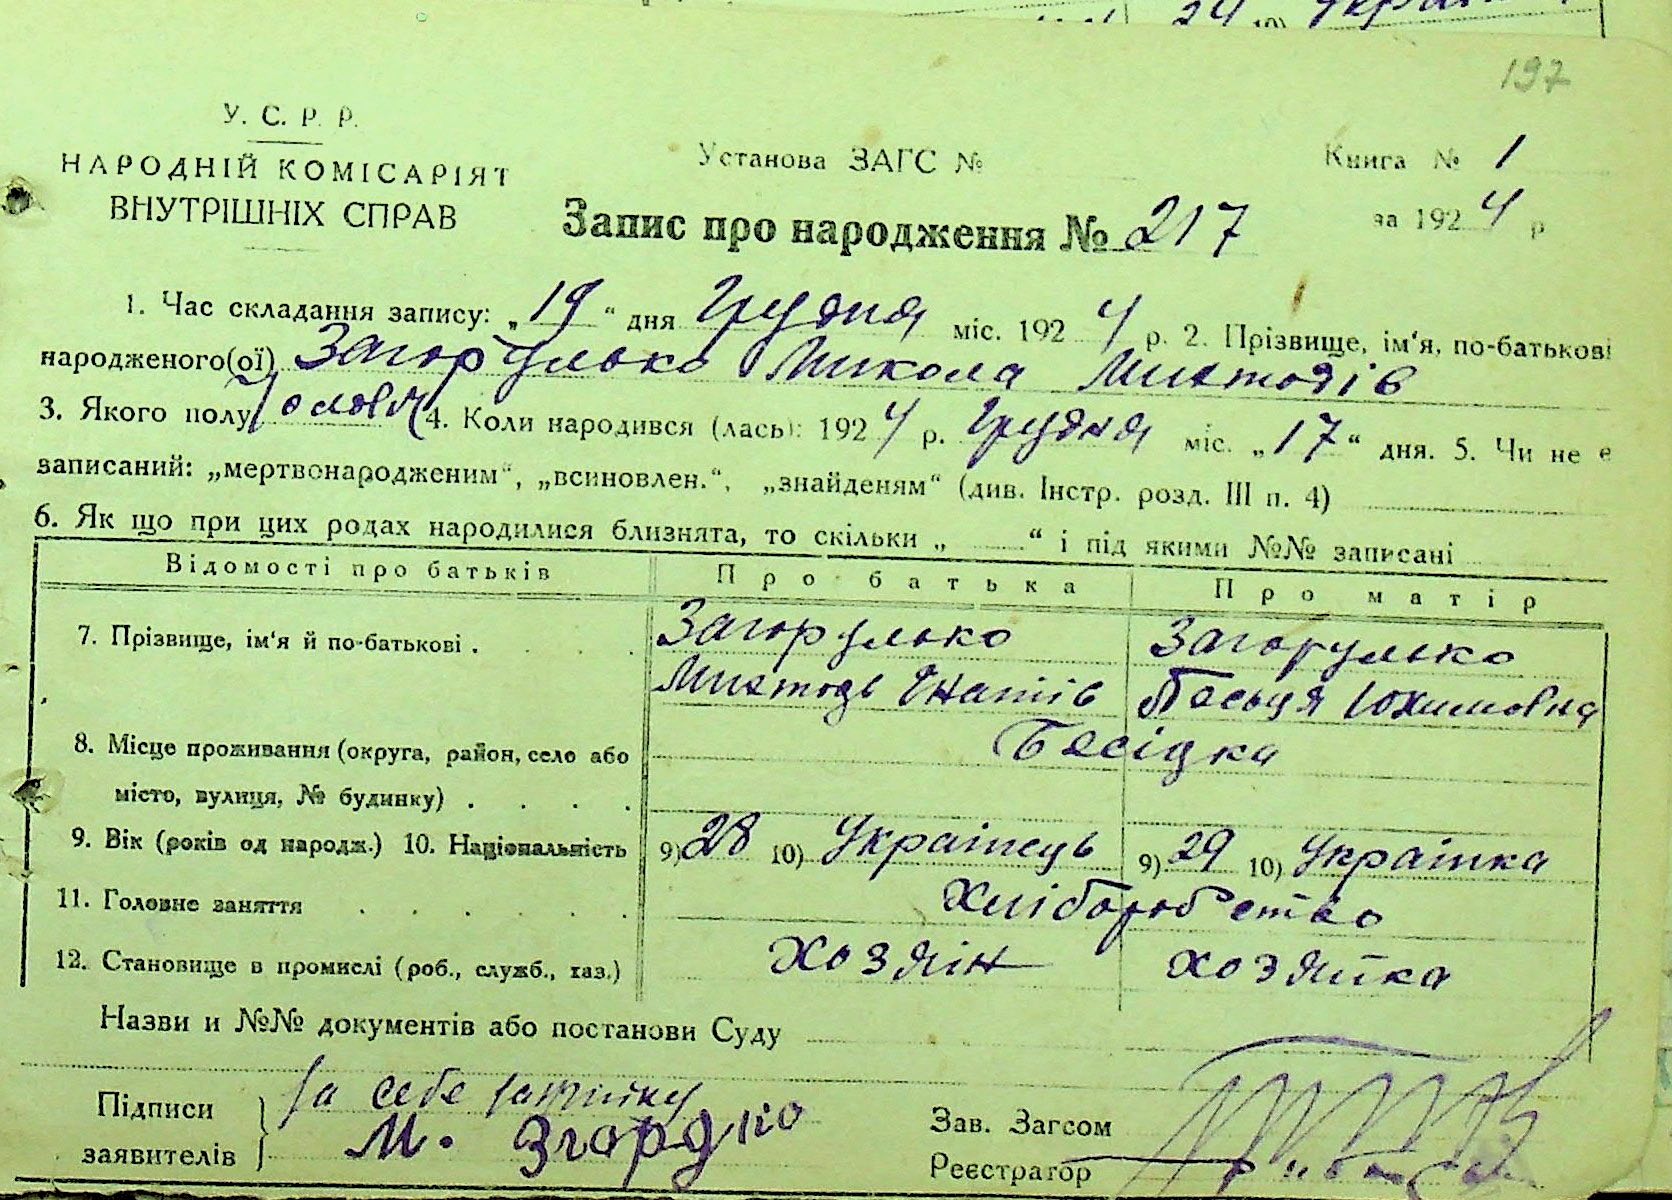 24 10) Украї
197
У. С. Р. Р.
НАРОДНІЙ КОМІСАРІЯТ
ВНУТРІШНІХ СПРАВ
Установа ЗАГС №
Книга № 1
Запис про народження № 217
за 1924 р
1. Час складання запису: „19“ дня Грудня міс. 1924 р. 2. Прізвище, ім'я, по-батькові
народженого(ої) Загорулько Микола Миктодів
3. Якого полу Чоловіч 4. Коли народився (лась): 1924 р. Грудня міс. „17“ дня. 5. Чи не є
записаний: „мертвонародженим“, „всиновлен.“, „знайденям“ (див. Інстр. розд. III п. 4)
6. Як що при цих родах народилися близнята, то скільки „ “ і під якими №№ записані
Відомості про батьків Про батька Про матір
7. Прізвище, ім'я й по-батькові . Загорулько Загорулько
Миктодь Гнатів Юхимовна
8. Місце проживання (округа, район, село або Бесідка
місто, вулиця, № будинку)
9. Вік (років од народж.) 10. Національність 9) 28 10) Українець 9) 29 10) Українка
11. Головне заняття Хліборобство
12. Становище в промислі (роб., служб., хаз.) хозяін хозяйка
Назви и №№ документів або постанови Суду
Підписи За себе
заявителів М.
Зав. Загсом
Реєстратор